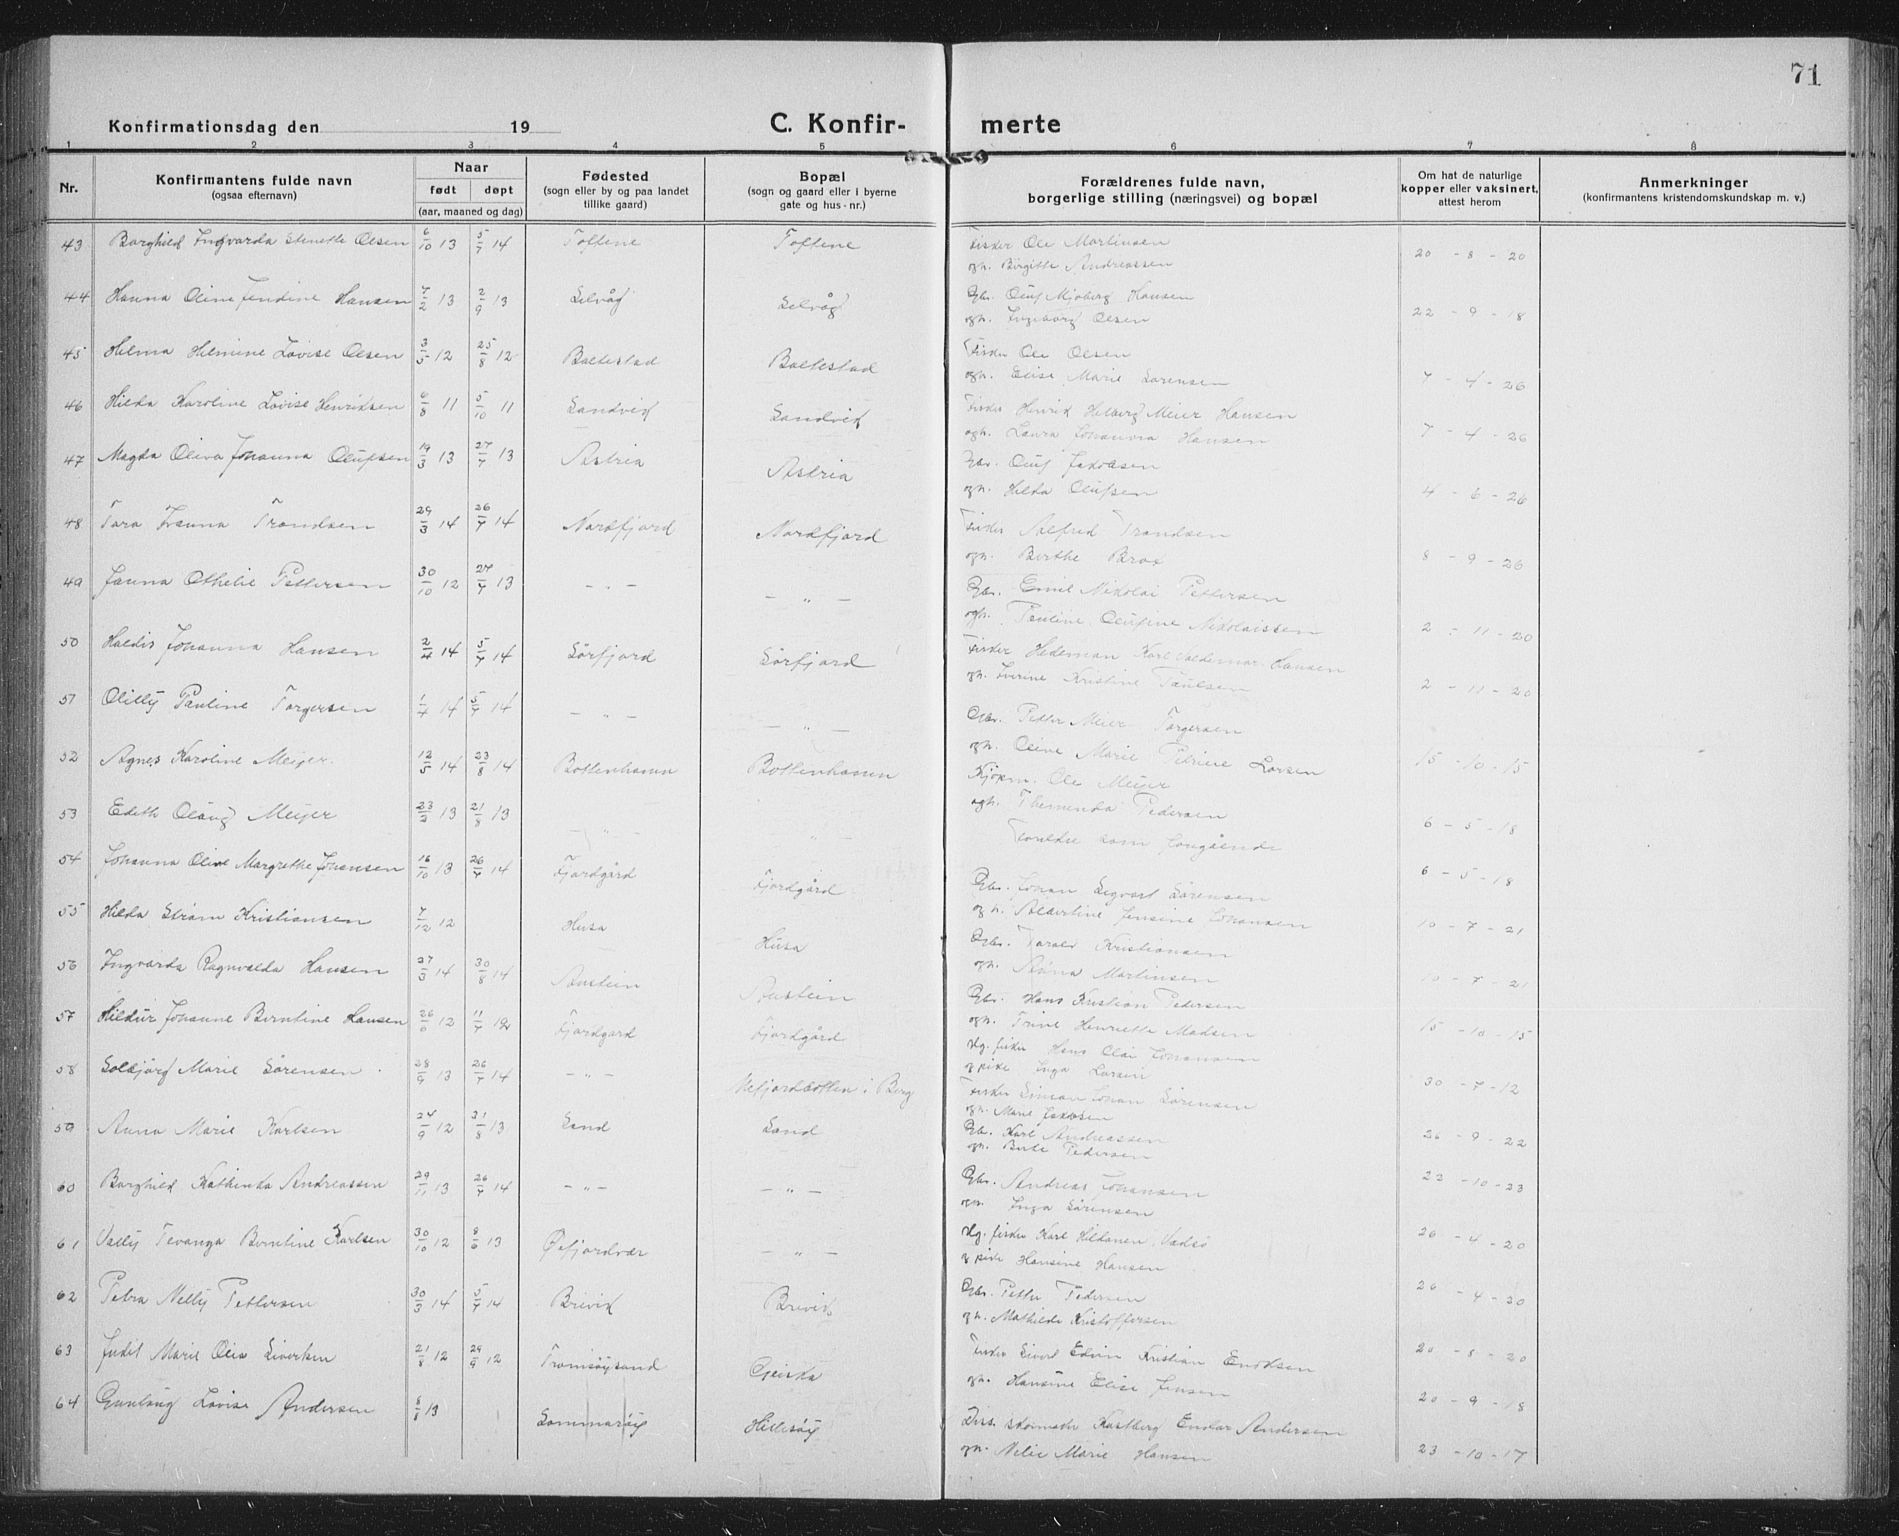 71
Konfirmationsdag den 19
C. Konfir- merte
1 2 3 4 5 6 7 8
Nr.
Konfirmantens fulde navn
(ogsaa efternavn)
Naar
født døpt
(aar, maaned og dag)
Fødested
(sogn eller by og paa landet
tillike gaard)
Bopæl
(sogn og gaard eller i byerne
gate og hus-nr.)
Forældrenes fulde navn,
borgerlige stilling (næringsvei) og bopæl
Om hat de naturlige
kopper eller vaksinert,
attest herom
Anmerkninger
(konfirmantens kristendomskundskap m. v.)
43 Borghild Ingvarda Stenette Olsen 6/10 13 5/7 14 Toftene Toftene Fisker Ole Martinsen
ogh. Birgitte Andreassen 20-8-20
44 Hanna Oline Jendine Hansen 7/2 13 2/9 13 Selvåg Selvåg Gbr. Oluf Mjøberg Hansen
ogh. Ingeborg Olsen 22-9-18
45 Helma Helmine Lovise Olsen 3/5 12 25/8 12 Baltestad Baltestad Fisker Ole Olsen
ogh. Elise Marie Sørensen 7-4-26
46 Hilda Karoline Lovise Henriksen 6/8 11 5/10 11 Sandvik Sandvik Fisker Henrik Holberg Meier Hansen
ogh. Laura Johanna Hansen 7-4-26
47 Magda Oliva Johanna Olufsen 19/3 13 27/7 13 Astria Astria Gbr. Oluf Jakobsen
ogh. Hilda Olufsen 4-6-26
48 Tora Trondsen 29/3 14 26/7 14 Nordfjord Nordfjord Fisker Alfred Trondsen
ogh. Birthe Brox 8-9-26
49 Janna Othelie Pettersen 30/10 12 27/7 13 - " - - " - Gbr. Emil Nikolai Pettersen
ogh. Pauline Olufine Nikolaissen 2-11-20
50 Haldis Johanna Hansen 2/4 14 5/7 14 Sørfjord Sørfjord Fisker Hedeman Karl Valdemar Hansen
ogh. Iverine Kristine Paulsen 2-11-20
51 Olilly Pauline Torgersen 1/4 14 5/7 14 - " - - " - Gbr. Petter Meier Torgersen
ogh. Oline Marie Petrine Larsen 15-10-15
52 Agnes Karoline Meijer 12/5 14 23/8 14 Bottenhamn Bottenhamn Kjøpm. Ole Meijer
ogh. Pedersen 6-5-18
53 Edith Olaug Meijer 23/2 13 21/8 13 - " - " Foreldre som foregående 6-5-18
54 Johanna Olive Margrethe Johansen 16/10 13 26/7 14 Fjordgård Fjordgård Gbr. Johan Sigvart Sørensen
ogh. Albertine Jensine Johansen 10-7-21
55 Hilda Strøm Kristiansen 7/12 12 Husa Husa Gbr. Torald Kristiansen
ogh. Martinsen 10-7-21
56 Ingvarda Ragnvalda Hansen 27/3 14 30/8 14 Austein Austein Gbr. Hans Kristian Pedersen
ogh. Trine Henriette Madsen 15-10-15
57 Hildur Johanne Berntine Hansen 26/6 12 11/7 12 Fjordgard Fjordgård Ug. fisker Hans Olai Johansen
og pike Inga Larsen 30-7-12
58 Solbjørg Marie Sørensen 28/9 13 26/7 14 - " - Mefjordbotten i Berg Fisker Simon Johan Sørensen
ogh. Marie Jakobsen
59 Anna Marie Karlsen 24/9 12 31/8 13 Sand Sand Gbr. Karl Andreassen
ogh. Berte Pedersen 26-9-22
60 Borghild Kathinka Andreassen 29/11 13 26/7 14 - " - - " - Gbr. Andreas Johansen
ogh. Inga Sørensen 22-10-23
61 Vally Tevanga Berntine Karlsen 30/10 12 8/6 13 Øyfjordvær - " - Ug. fisker Karl Hildonen, Vadsø
og pike Hansine Hansen 26-4-20
62 Petra Nelly Pettersen 30/3 14 5/7 14 Brevik Brevik Gbr. Petter Pedersen
ogh. Mathilde Kristoffersen 26-4-20
63 Judit Marie Olea Sivertsen 21/8 12 29/9 12 Tromsøysund Gjeska Fisker Sivert Edvin Kristian Enoksen
ogh. Hansine Elise Jensen 20-8-20
64 Gunlaug Lovise Andersen 8/8 13 Sommarøy Hillesøy Diss. Kastberg Enolar Andersen
ogh. Nelie Marie Hansen 20-9-18
23-10-17